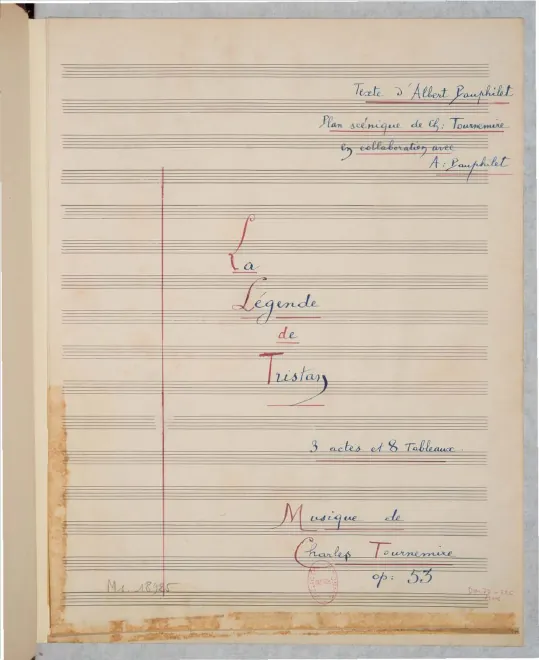 Texte d'Albert Pauphilet
Plan scénique de Ch: Tournemire
en collaboration avec
A: Pauphilet
La
Légende
de
Tristan
3 actes et 8 Tableaux
Musique de
Charles Tournemire
op: 53
Ms. 18985